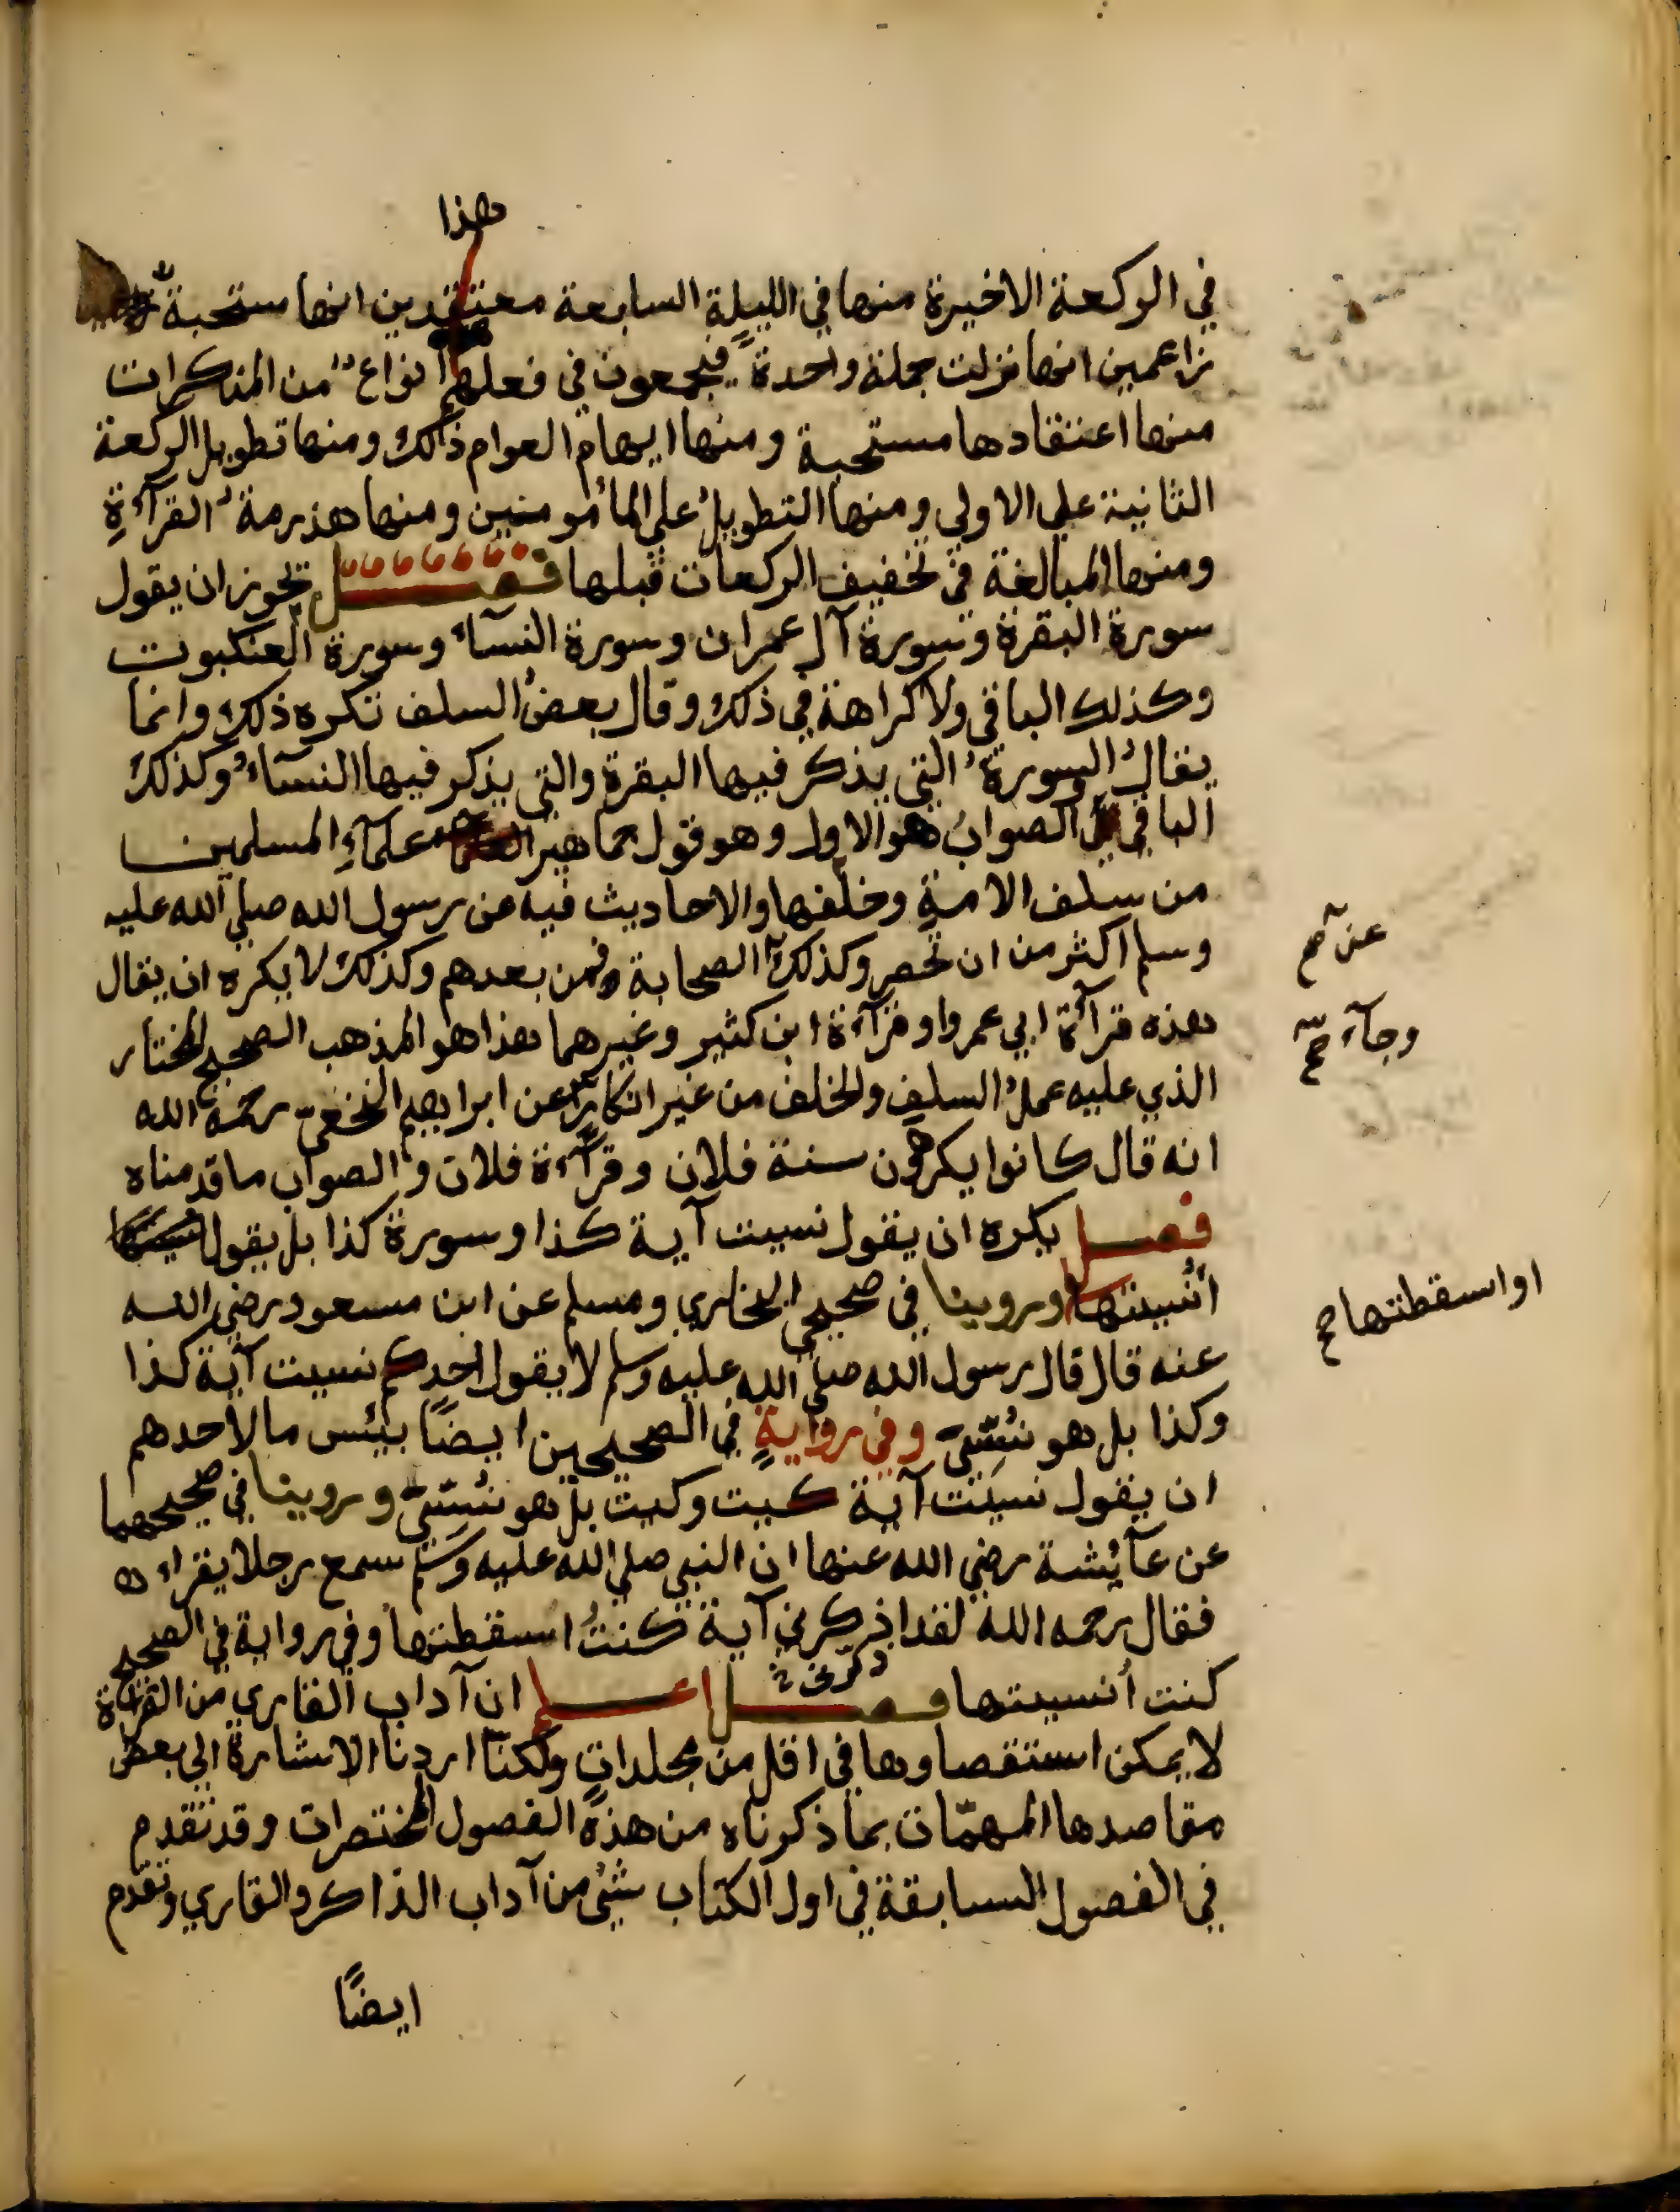 هذا
في الركعة الاخيرة منها في الليلة السابعة معتقدين انها مستحبة
زاعمين انها نزلت جملة واحدة فيجمعون في فعلهم انواع من المنكرات
منها اعتقادها مستحبة ومنها ايهام العوام ذلك ومنها تطويل الركعة
الثانية علي الاولي ومنها التطويل علي المأمومنين ومنها هذرمة القرآءة
ومنها المبالغة في تخفيف الركعات قبلها فصل يجوز ان يقول
سورة البقرة وسورة آل عمران وسورة النسآء وسورة العنكبوت
وكذلك الباقي ولا كراهة في ذلك وقال بعض السلف نكره ذلك وانما
يقال السورة التي يذكر فيها البقرة والتي يذكر فيها النسآء وكذلك
الباقي الصواب هو الاول وهو قول جماهير علمآء المسلمين
من سلف الامة وخلفها والاحاديث فيه عن رسول الله صلي الله عليه
وسلم اكثر من ان تحصر وكذلك الصحابة فمن بعدهم وكذلك لا يكره ان يقال
عن صح
هذه قرآءة ابي عمرو او قرآءة ابن كثير وغيرهما هذا هو المذهب الصحيح المختار
وجآء صح
الذي عليه عمل السلف والخلف من غير انكار عن ابراهيم النخعي رحمه الله
انه قال كانوا يكرهون سنة فلان وقرآءة فلان والصواب ما قدمناه
فصل يكره ان يقول نسيت آية كذا وسورة كذا بل يقول
أنسيتها وروينا في صحيحي البخاري ومسلم عن ابن مسعود رضي الله
او اسقطتها صح
عنه قال قال رسول الله صلي الله عليه وسلم لا يقول احدكم نسيت آية كذا
وكذا بل هو نُسّيَ وفي روايةٍ في الصحيحين ايضًا بيئس ما لاحدهم
ان يقول نسيت آية كيت وكيت بل هو نُسّيَ وروينا في صحيحهما
عن عآئشة رضي الله عنها ان النبي صلي الله عليه وسلم سمع رجلا يقراء
فقال رحمه الله لقد اذكرني آية كنتُ اسقطتها وفي رواية في الصحيح
ذكّرني
كنت أنسيتها فصل اعلم ان آداب القاري من القراءة
لا يمكن استقصاوها في اقل من مجلداتٍ ولكنّا اردنا الاشارة الي بعض
مقاصدها المهمّات بما ذكرناه من هذه الفصول المختصرات وقد تقدم
في الفصول السابقة في اول الكتاب شيئ من آداب الذاكر والقاري وتقدم
ايضًا